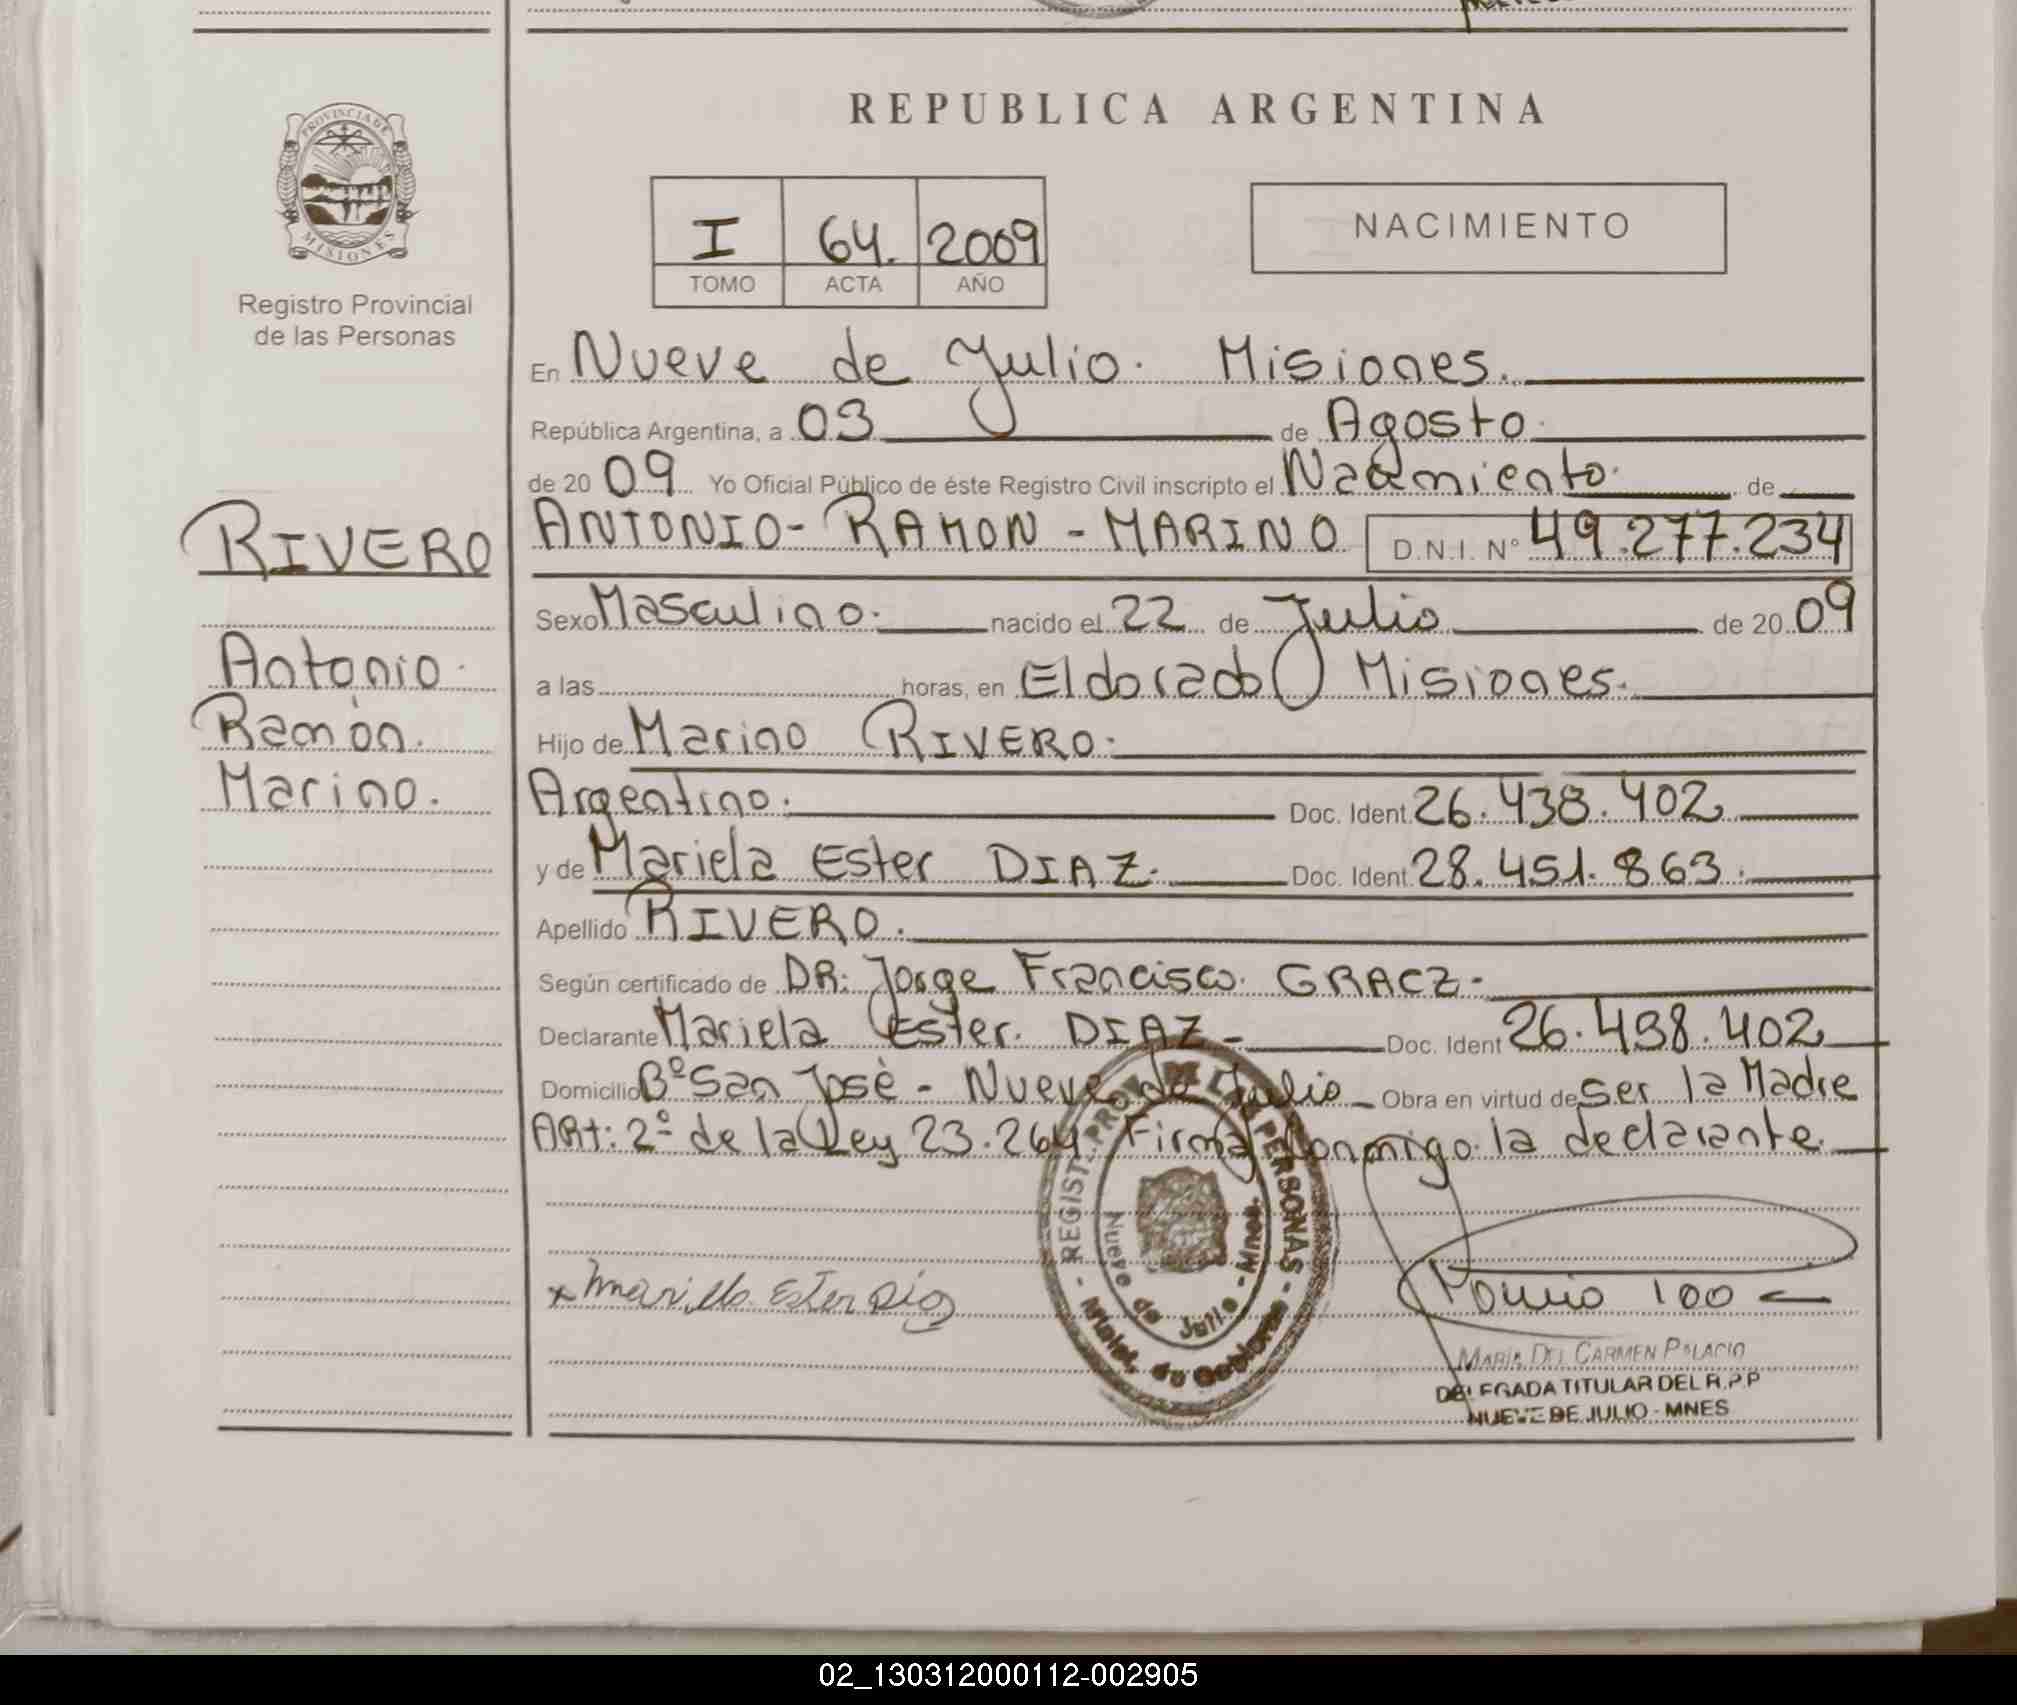 PROVINCIA DE
MISIONES
Registro Provincial
de las Personas
REPUBLICA ARGENTINA
I 64. 2009
TOMO ACTA AÑO
NACIMIENTO
En Nueve de Julio. Misiones.
República Argentina, a 03 de Agosto.
de 20 09 Yo Oficial Público de éste Registro Civil inscripto el Nacimiento. de
RIVERO
Antonio.
Ramón.
Marino.
ANTONIO - RAMON - MARINO D.N.I. N° 49.277.234
Sexo Masculino. nacido el 22 de Julio de 20 09
a las horas, en Eldorado Misiones.
Hijo de Marino RIVERO.
Argentino. Doc. Ident. 26.438.402
y de Mariela Ester DIAZ. Doc. Ident. 28.451.863.
Apellido RIVERO.
Según certificado de DR: Jorge Francisco. GRACZ-
Declarante Mariela Ester. DIAZ- Doc. Ident 26.438.402
Domicilio Bº San José - Nueve de Julio - Obra en virtud de ser la Madre
ARt: 2º de la Ley 23.264 Firma Conmigo la declarante.
REGIST. PROV. DE LAS PERSONAS - Minist. de Gobierno -
Nueve de Julio - Mnes.
x Mariela Ester Diaz
MARIA DEL CARMEN PALACIO
DELEGADA TITULAR DEL R.P.P
NUEVE DE JULIO - MNES
02_130312000112-002905